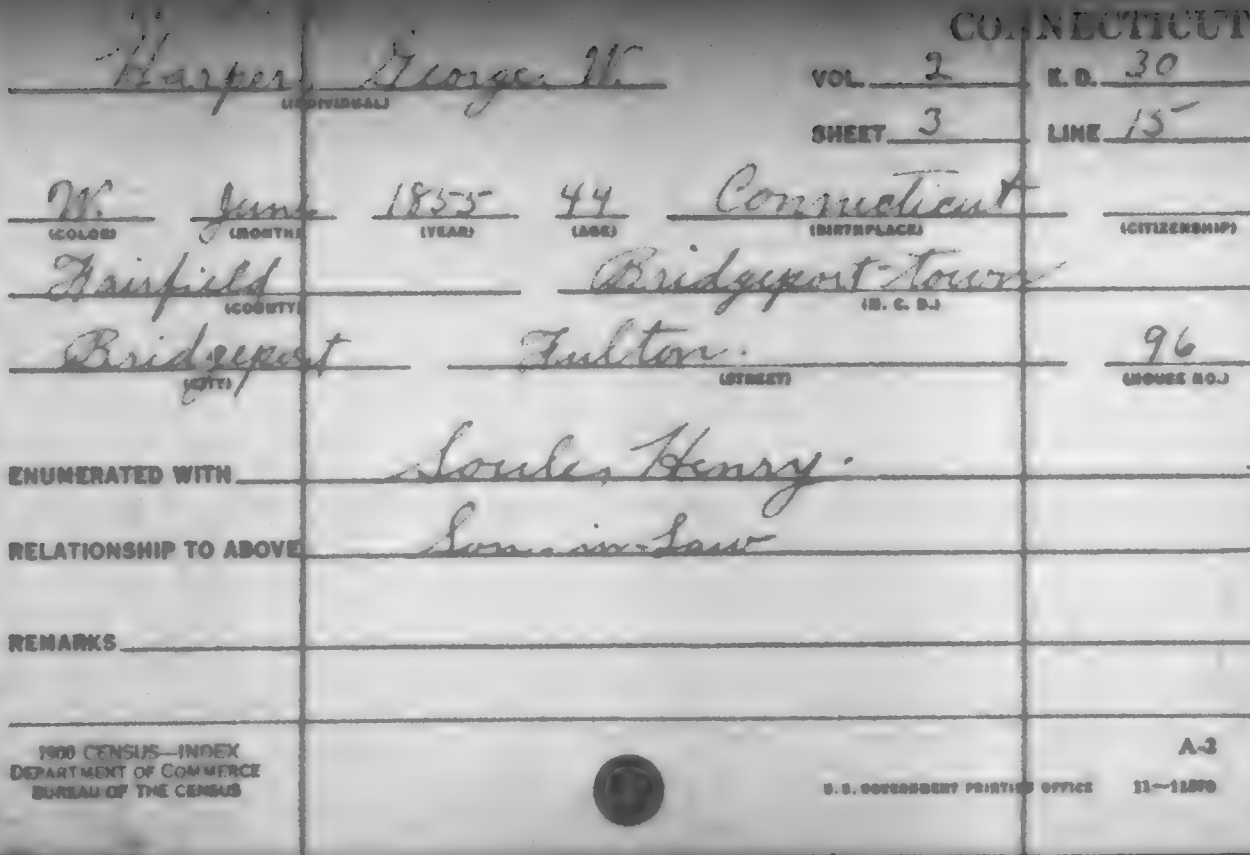 CONNECTICUT
Harper, George W. VOL. 2 E. D. 30
(INDIVIDUAL)
SHEET 3 LINE 15
W. June 1855 44 Connecticut
(COLOR) (MONTH) (YEAR) (AGE) (BIRTHPLACE) (CITIZENSHIP)
Fairfield Bridgeport town
(COUNTY) (M. C. D.)
Bridgeport Fulton. 96
(CITY) (STREET) (HOUSE NO.)
ENUMERATED WITH Soule, Henry.
RELATIONSHIP TO ABOVE Son-in-Law
REMARKS
1900 CENSUS—INDEX A-2
DEPARTMENT OF COMMERCE
BUREAU OF THE CENSUS U.S. GOVERNMENT PRINTING OFFICE